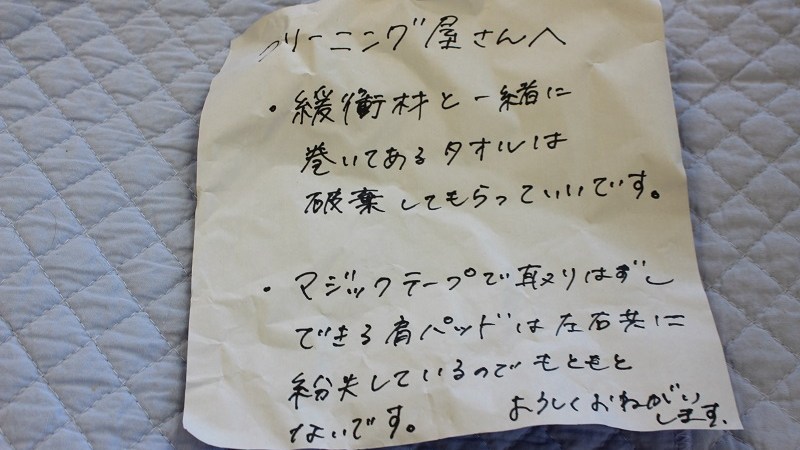 クリーニング屋さんへ
・緩衝材と一緒に
巻いてあるタオルは
破棄してもらっていいです。
・マジックテープで取りはずし
できる肩パッドは左右共に
紛失しているのでもともと
ないです。
よろしくおねがい
します.